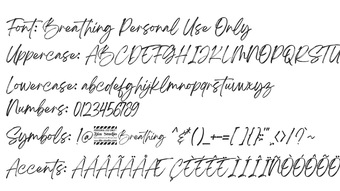 Font: Breathing Personal Use Only
Uppercase: ABCDEFGHIJKLMNOPQRSTU
Lowercase: abcdefghijklmnopqrstuvwxyz
Numbers: 0123456789
Symbols: !@ Breathing ^&*()_+-=[]{}:",.<>/?~
Accents: ÀÁÂÃÄÅÆ ÇÈÉÊËÌÍÎÏÑÒÓÔÕÖ